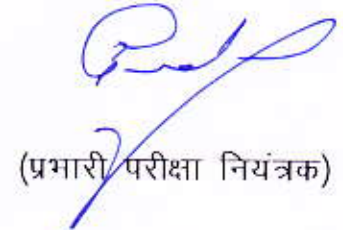 (प्रभारी परीक्षा नियंत्रक)